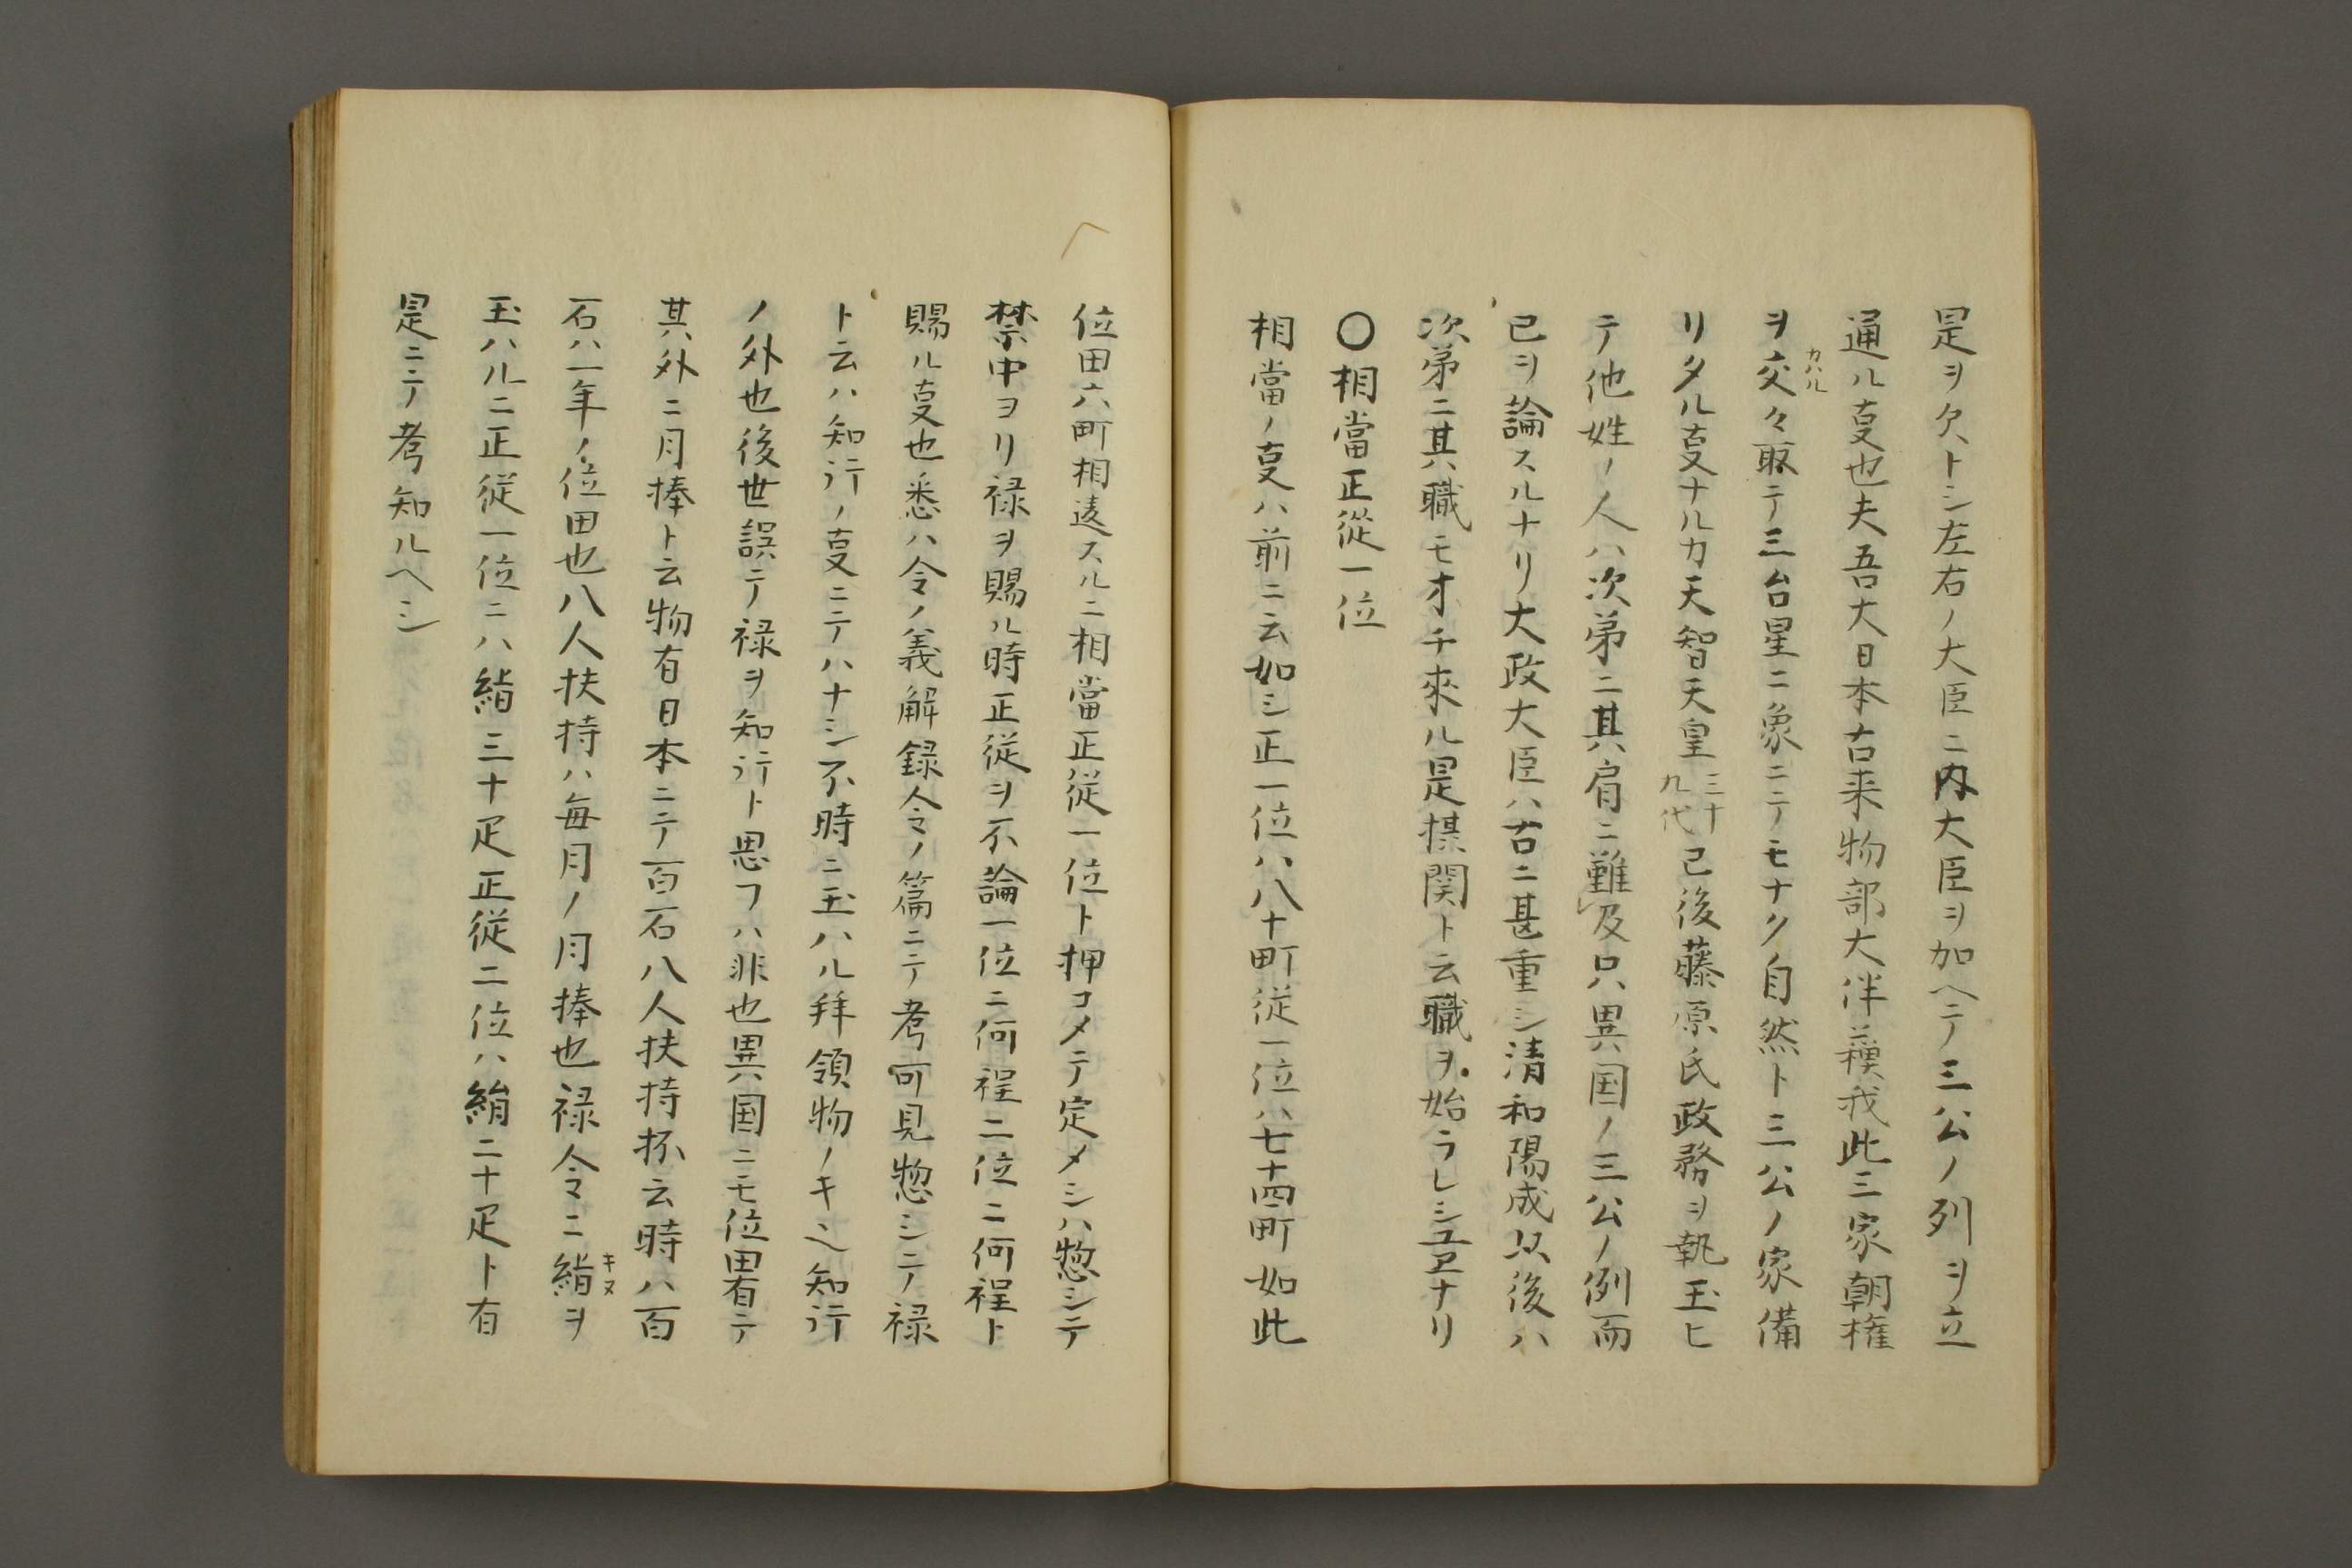 是ヲ欠トシ左右ノ大臣ニ内大臣ヲ加ヘテ三公ノ列ヲ立
通ル亊也夫吾大日本古来物部大伴蘓我此三家朝権
ヲ交々取テ三台星ニ象ニテモナク自然ト三公ノ家備
カハル
リタル亊ナルカ天智天皇三十九代已後藤原氏政務ヲ執玉ヒ
テ他姓ノ人ハ次第ニ其肩ニ難及只異国ノ三公ノ例而
已ヲ論スルナリ大政大臣ハ古ニ甚重シ清和陽成以後ハ
次第ニ其職モオチ來ル是摂関ト云職ヲ始ラレシユヱナリ
〇相當正從一位
相當ノ亊ハ前ニ云如シ正一位ハ八十町従一位ハ七十四町如此
位田六町相違スルニ相當正従一位ト押コメテ定メシハ惣シテ
禁中ヨリ禄ヲ賜ル時正従ヲ不論一位ニ何程二位ニ何程ト
賜ル亊也悉ハ令ノ義解録令ノ篇ニテ考可見惣シテ禄
ト云ハ知行ノ亊ニテハナシ不時ニ玉ハル拝領物ノキヘ知行
ノ外也後世誤テ禄ヲ知行ト思フハ非也異国ニモ位田有テ
其外ニ月捧ト云物有日本ニテ百石八人扶持抔云時ハ百
石ハ一年ノ位田也八人扶持ハ毎月ノ月捧也禄令ニ絹ヲ
キヌ
玉ハルニ正従一位ニハ絹三十疋正従二位ハ絹二十疋ト有
是ニテ考知ルヘシ